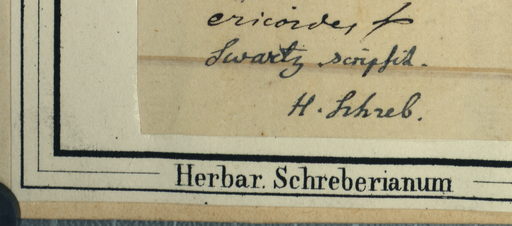 ericoides
Swartz scripsit.
H. Schreb.
Herbar. Schreberianum